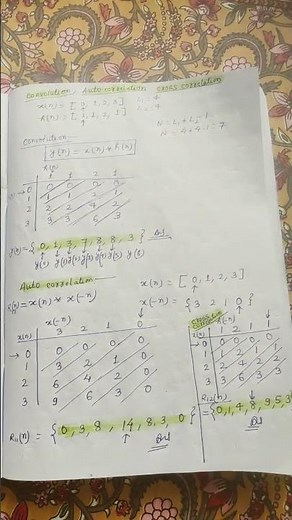 Convolution, Auto correlation, cross correlation
x(n) = [0, 1, 2, 3] L₁ = 4
h(n) = [1, 1, 2, 1] L₂ = 4
N = L₁ + L₂ - 1
N = 4 + 4 - 1 = 7
Convolution —
y(n) = x(n) * h(n)
h(n)
1 1 2 1
→ 0 0 0 0 0
1 1 1 2 1
2 2 2 4 2
3 3 3 6 3
y(n) = { 0, 1, 3, 7, 8, 8, 3 } Ans
Auto correlation —
R₁₁(n) = x(n) * x(-n)
x(n) = [0, 1, 2, 3]
x(-n) = {3 2 1 0}
x(-n)
x(n) 3 2 1 0
→ 0 0 0 0 0
1 3 2 1 0
2 6 4 2 0
3 9 6 3 0
R₁₁(n) = { 0, 3, 8, 14, 8, 3, 0 }
Ans
x(n) 1 2 1 1
→ 0 0 0 0 0
1 1 2 1 1
2 2 4 2 2
3 3 6 3 3
R₁₂(n)
= {0, 1, 4, 8, 9, 5, 3
Ans